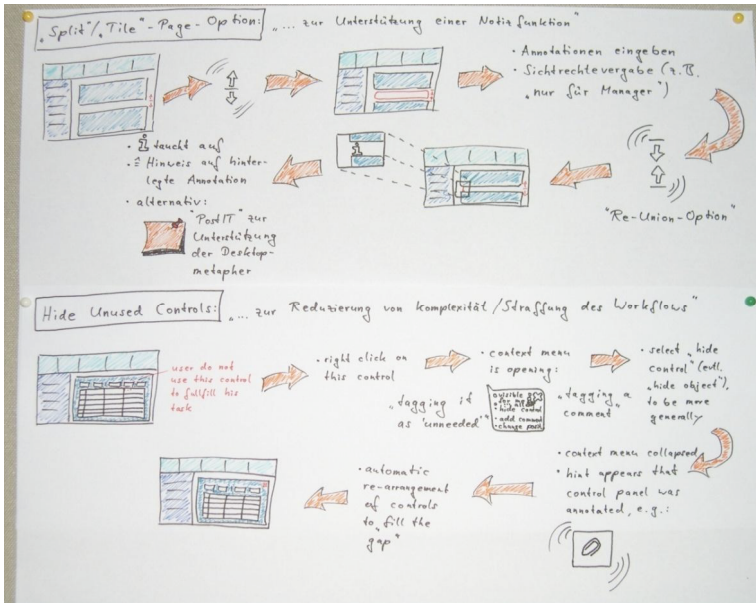 „Split"/„Tile"-Page-Option: „... zur Unterstützung einer Notizfunktion"
• Annotationen eingeben
• Sichtrechtevergabe (z.B.
„nur für Manager")
"Re-Union-Option"
i
• i taucht auf
• ≙ Hinweis auf hinter-
legte Annotation
• alternativ:
"PostIT" zur
Unterstützung
der Desktop-
metapher
Hide Unused Controls: „... zur Reduzierung von Komplexität/Straffung des Workflows"
user do not
use this control
to fullfill his
task
• right click on
this control
„tagging it
as 'unneeded'"
• context menu
is opening:
• hide control
• add comment
„tagging a
comment"
• select „hide
control" (evtl.
„hide object"),
to be more
generally
• context menu collapsed
• hint appears that
control panel was
annotated, e.g.:
• automatic
re-arrangement
of controls
to „fill the
gap"